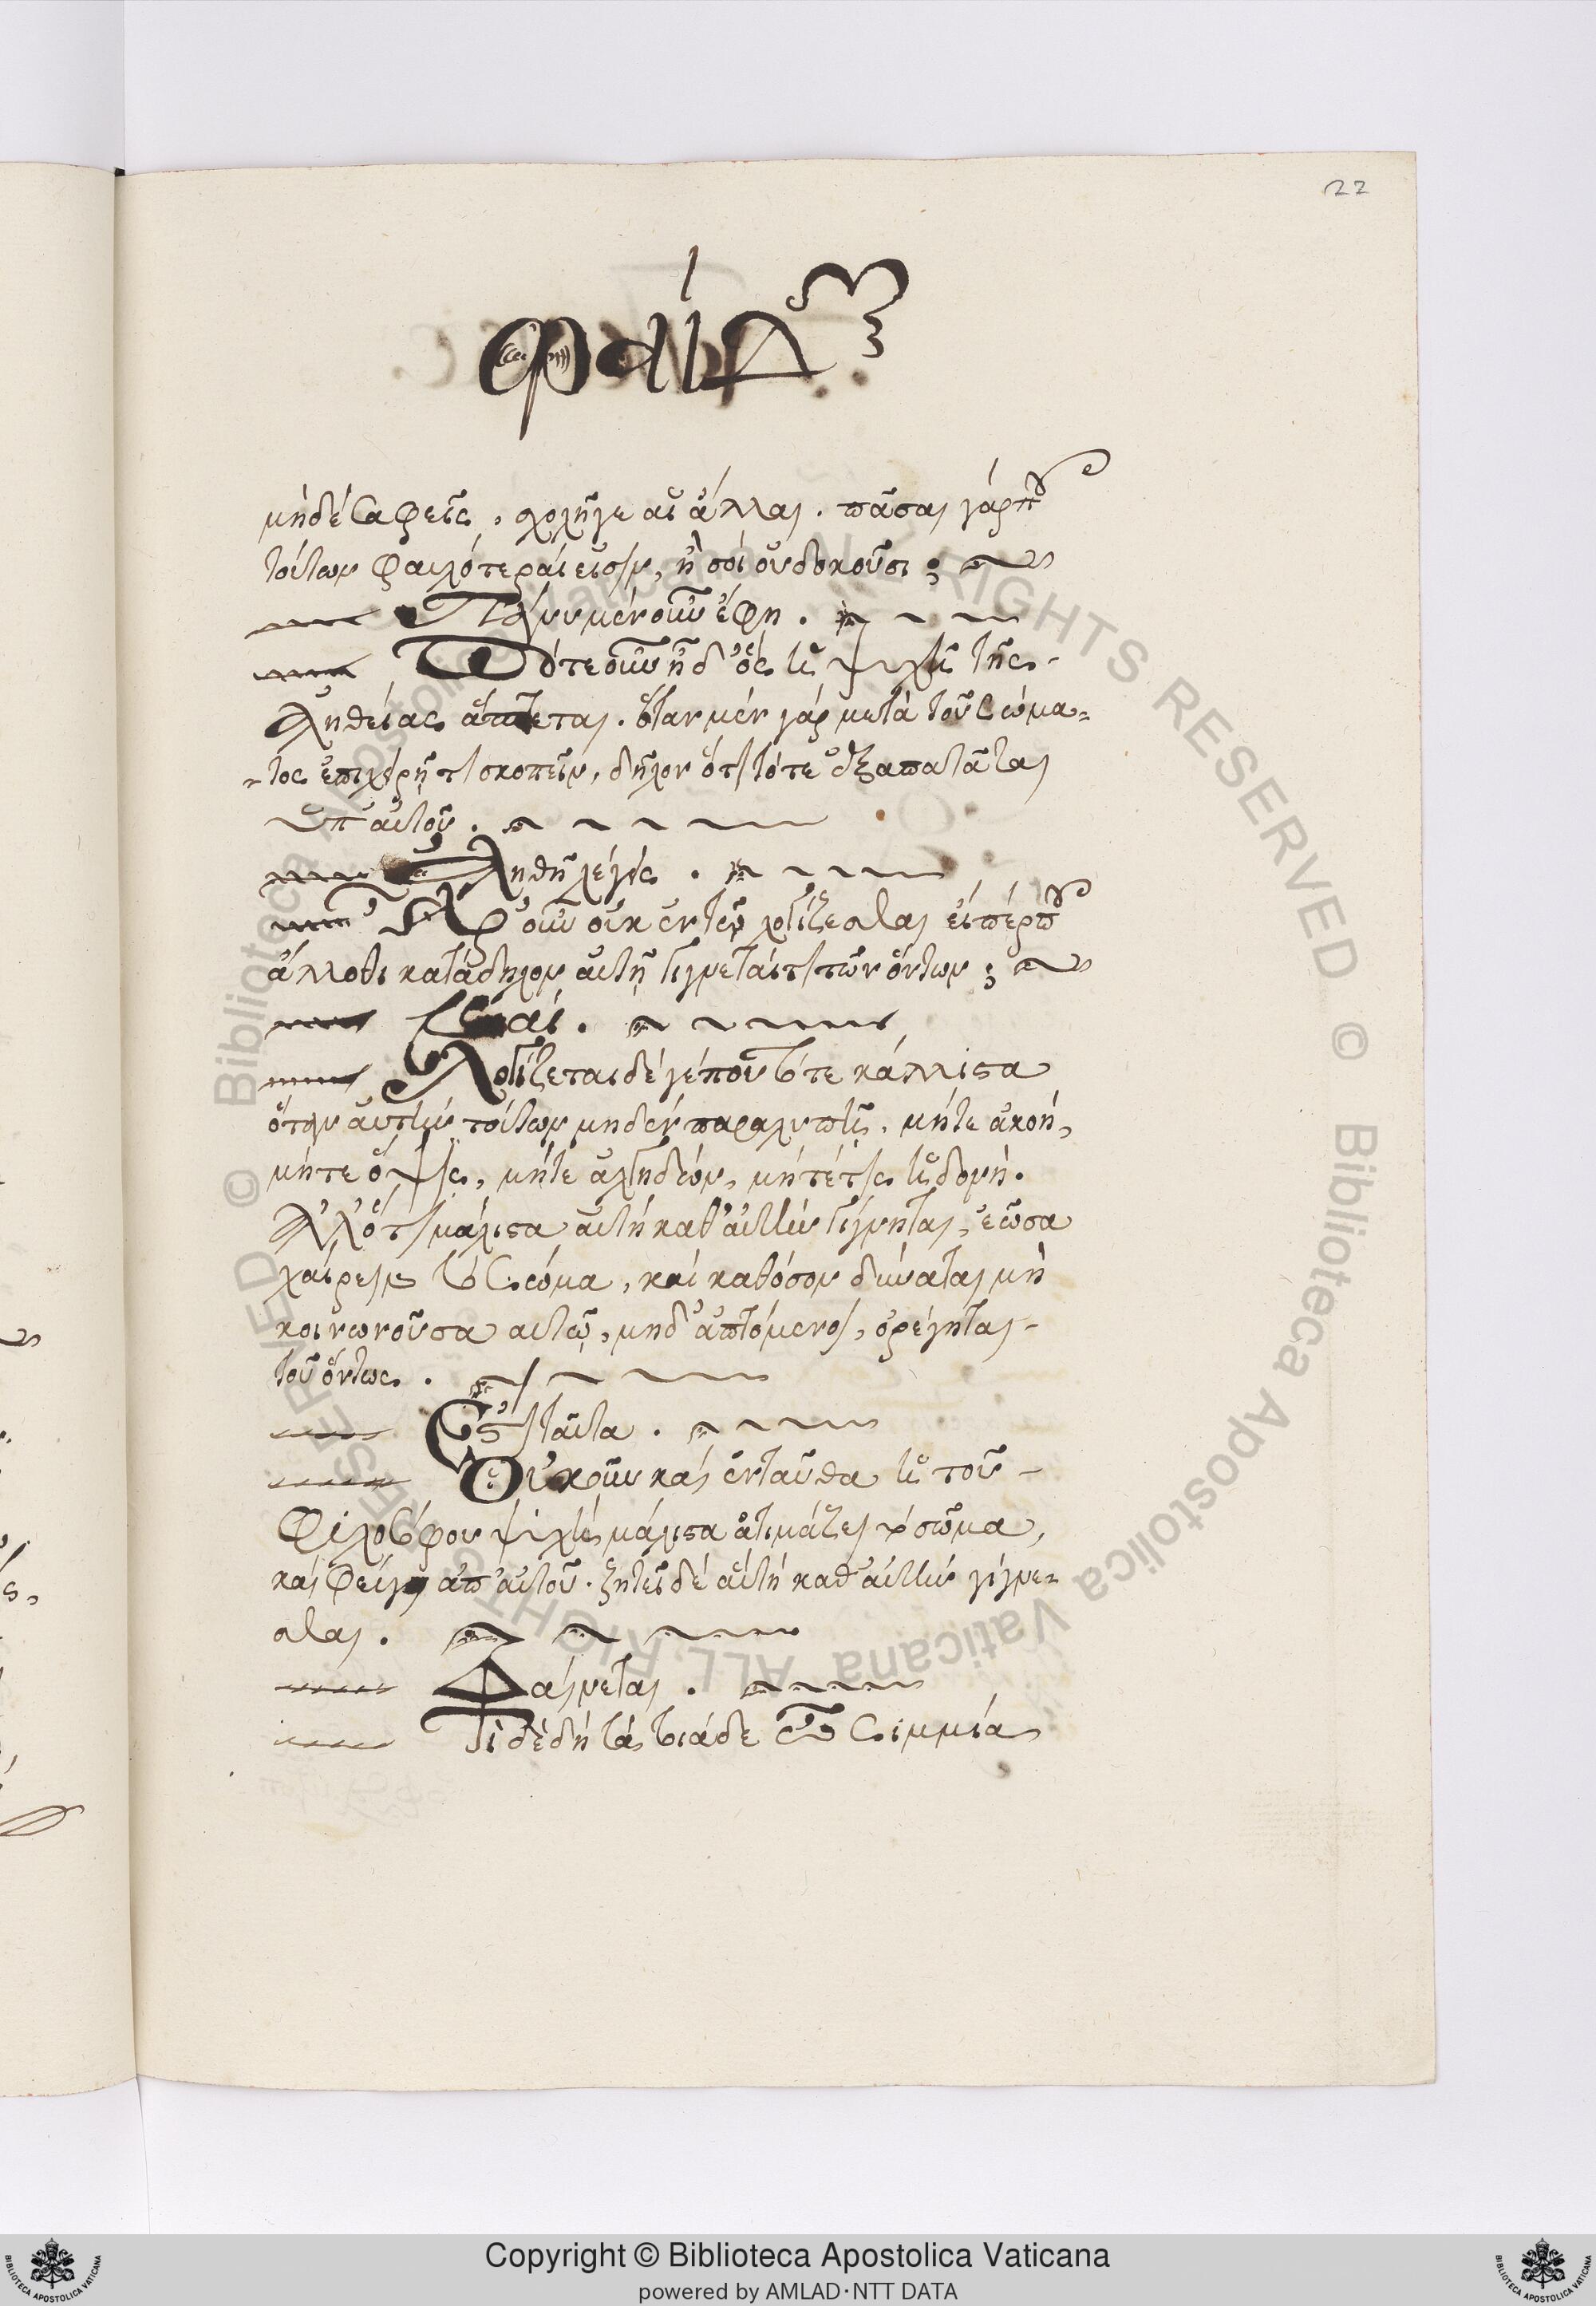 22
φαίδων
μὴδὲ σαφεῖς, σχολῆγε αἱ ἄλλαι. πᾶσαι γάρ που
τούτων φαυλότεραί εἰσιν, ἢ σοὶ οὐ δοκοῦσι;
Πάνυ μὲν οὖν ἔφη.
Πότε οὖν ἦ δ' ὃς ἡ ψυχὴ τῆς
ἀληθείας ἅπτεται. ὅταν μὲν γὰρ μετὰ τοῦ σώμα-
-τος ἐπιχειρῇ τι σκοπεῖν, δῆλον ὅτι τότε ἐξαπατᾶται
ὑπ' αὐτοῦ.
Ἀληθῆ λέγεις.
Ἆρ' οὖν οὐκ ἐν τῷ λογίζεσθαι εἴπέρ που
ἄλλοθι κατάδηλον αὐτῇ γίγνεταί τι τῶν ὄντων;
Ναί.
Λογίζεται δέ γέ που τότε κάλλιστα
ὅταν αὐτὴν τούτων μηδὲν παραλυπῇ, μήτε ἀκοὴ,
μήτε ὄψις, μήτε ἀλγηδὼν, μήτέ τις ἡδονή.
Ἀλλ' ὅτι μάλιστα αὐτὴ καθ' αὑτὴν γίγνηται, ἐῶσα
χαίρειν τὸ σῶμα, καὶ καθόσον δύναται μὴ
κοινωνοῦσα αὐτῷ, μηδ' ἁπτομένη, ὀρέγηται
τοῦ ὄντος.
Ἔστι ταῦτα.
Οὐκοῦν καὶ ἐνταῦθα ἡ τοῦ
Φιλοσόφου ψυχὴ μάλιστα ἀτιμάζει τὸ σῶμα,
καὶ φεύγει ἀπ' αὐτοῦ. ζητεῖ δὲ αὐτὴ καθ' αὑτὴν γίγνε-
σθαι.
Φαίνεται.
Τί δὲ δὴ τὰ τοιάδε ὦ Σιμμία
Copyright © Biblioteca Apostolica Vaticana
powered by AMLAD·NTT DATA